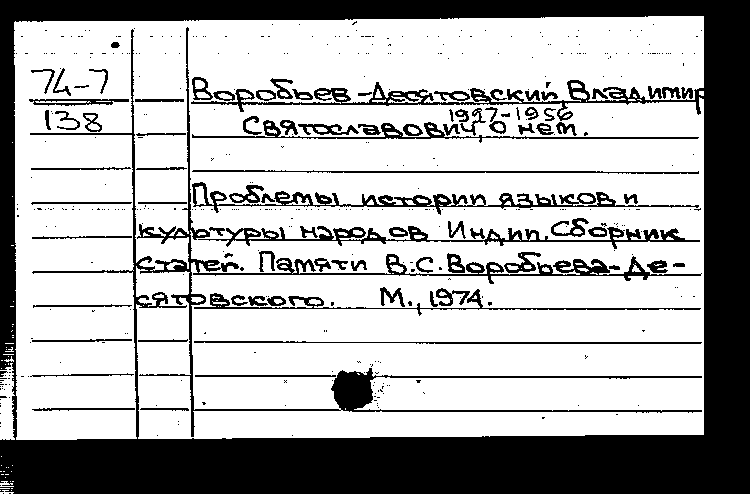 74-7
138
Воробьев-Десятовский, Владимир
1927-1956
Святославович, о нем.
Проблемы истории языков и
культуры народов Индии. Сборник
статей. Памяти В.С.Воробьева-Де-
сятовского. М., 1974.